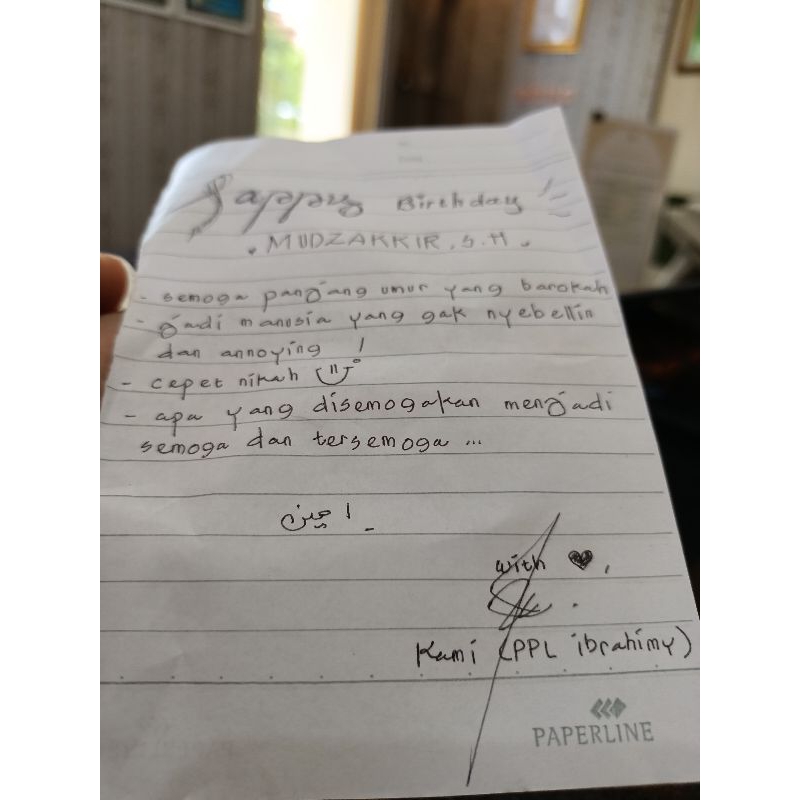 Happy Birthday
. MUDZAKKIR, S.H .
- semoga panjang umur yang barokah
- jadi manusia yang gak nyebellin
dan annoying !
- cepet nikah
- apa yang disemogakan menjadi
semoga dan tersemoga ...
امين
with ♥,
Kami (PPL ibrahimy)
PAPERLINE